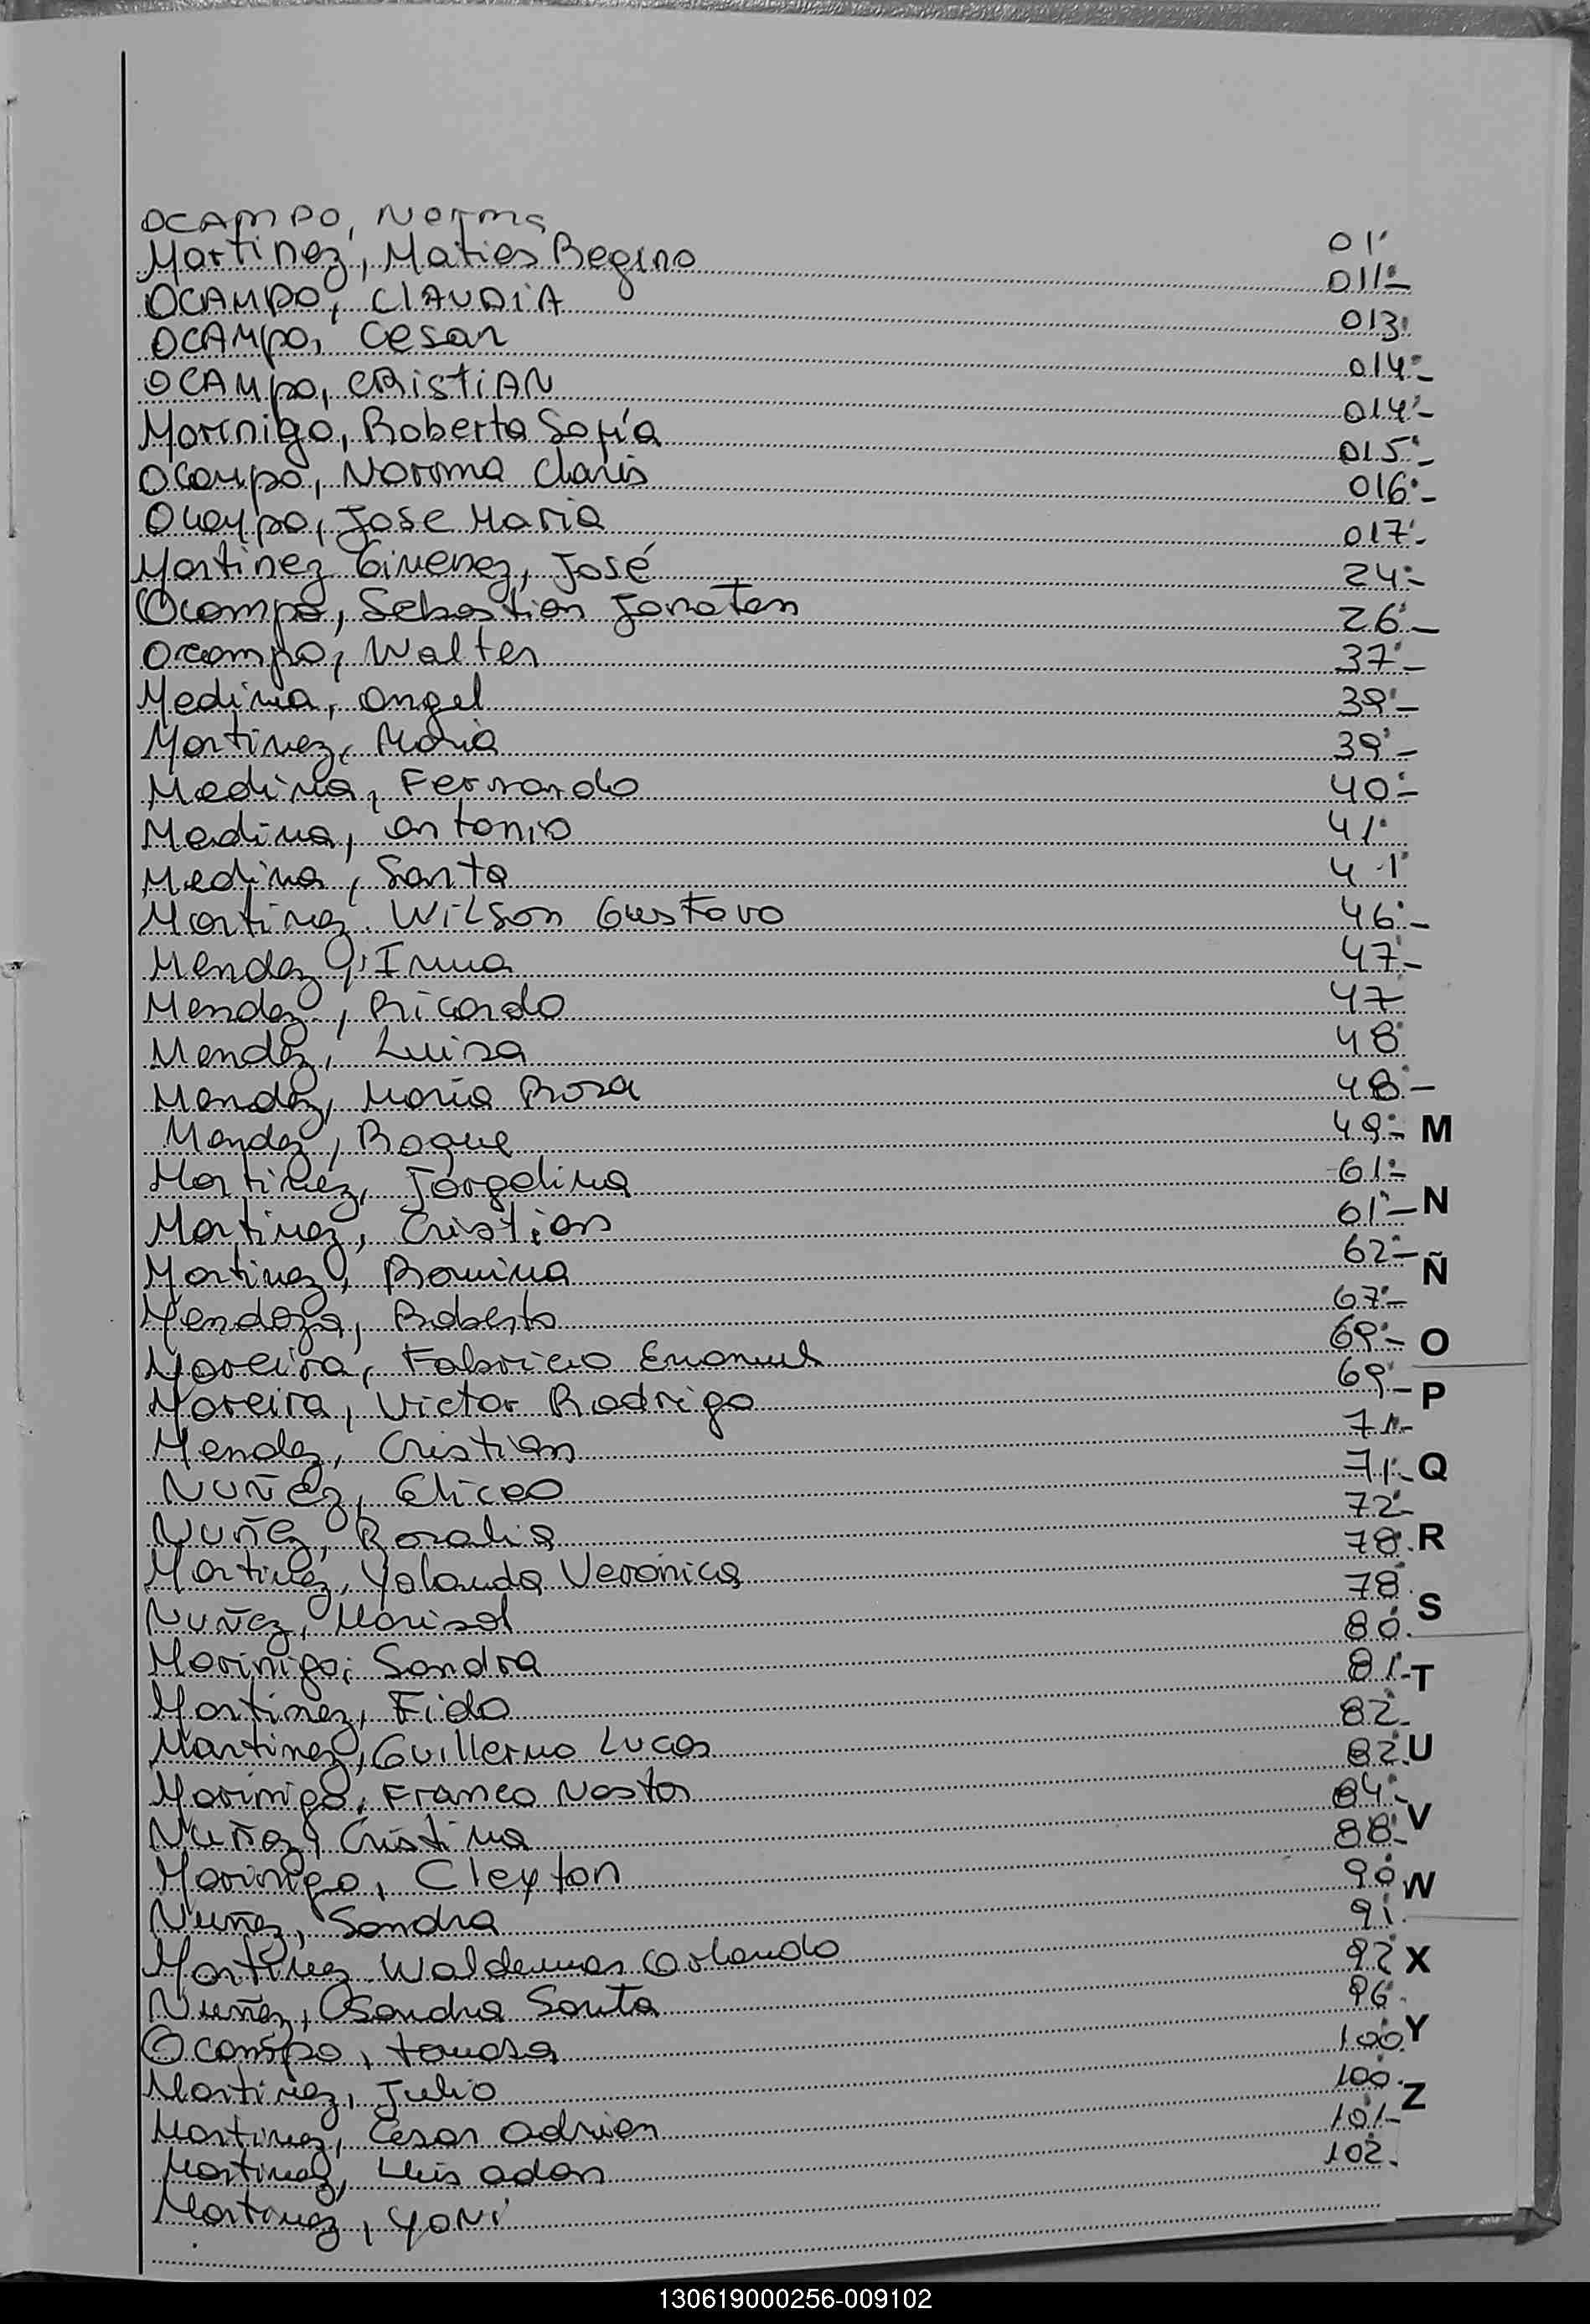 OCAMPO, Norma 01'
Martinez, Matias Regino 011'-
OCAMPO, CLAUDIA 013'
OCAMPO, Cesar 014'-
OCAMPO, CRISTIAN 014'-
Morinigo, Roberta Sofía 015'-
Ocampo, Norma Claris 016'-
Ocampo, Jose Maria 017'-
Martinez Gimenez, José 24'-
Ocampo, Sebastian Jonatan 26'-
Ocampo, Walter 37'-
Medina, Angel 39'-
Martinez, Maria 39'-
Medina, Fernando 40'-
Medina, Antonio 41'
Medina, Santa 41'
Martinez. Wilson Gustavo 46'-
Mendez, Irma 47'-
Mendez, Ricardo 47
Mendez, Luisa 48'
Mendez, Maria Rosa 48'-
Mendez, Roque 49'- M
Martinez, Jorgelina 61'-
Martinez, Cristian 61'- N
Martinez, Romina 62'- Ñ
Mendoza, Roberto 67'-
Moreira, Fabricio Emanuel 69'- O
Moreira, Victor Rodrigo 69'- P
Mendez, Cristian 71'-
Nuñez, Eliceo 71'- Q
Nuñez, Rosalia 72'-
Martinez, Yolanda Verónica 78'. R
Nuñez, Marisol 78'
Morinigo, Sandra 80'. S
Martinez, Fido 81'- T
Martinez, Guillermo Lucas 82'-
Morinigo, Franco Nestor 82'. U
Nuñez, Cristina 84'-
Morinigo, Cleyton 88'- V
Nuñez, Sandra 90' W
Martinez Waldemar Orlando 91'
Nuñez, Sandra Santa 92' X
Ocampo, tomasa 96'
Martinez, Julio 100'. Y
Martinez, Cesar Adrian 100'. Z
Martinez, Luis adan 101'-
Martinez, Yoni 102'.
130619000256-009102